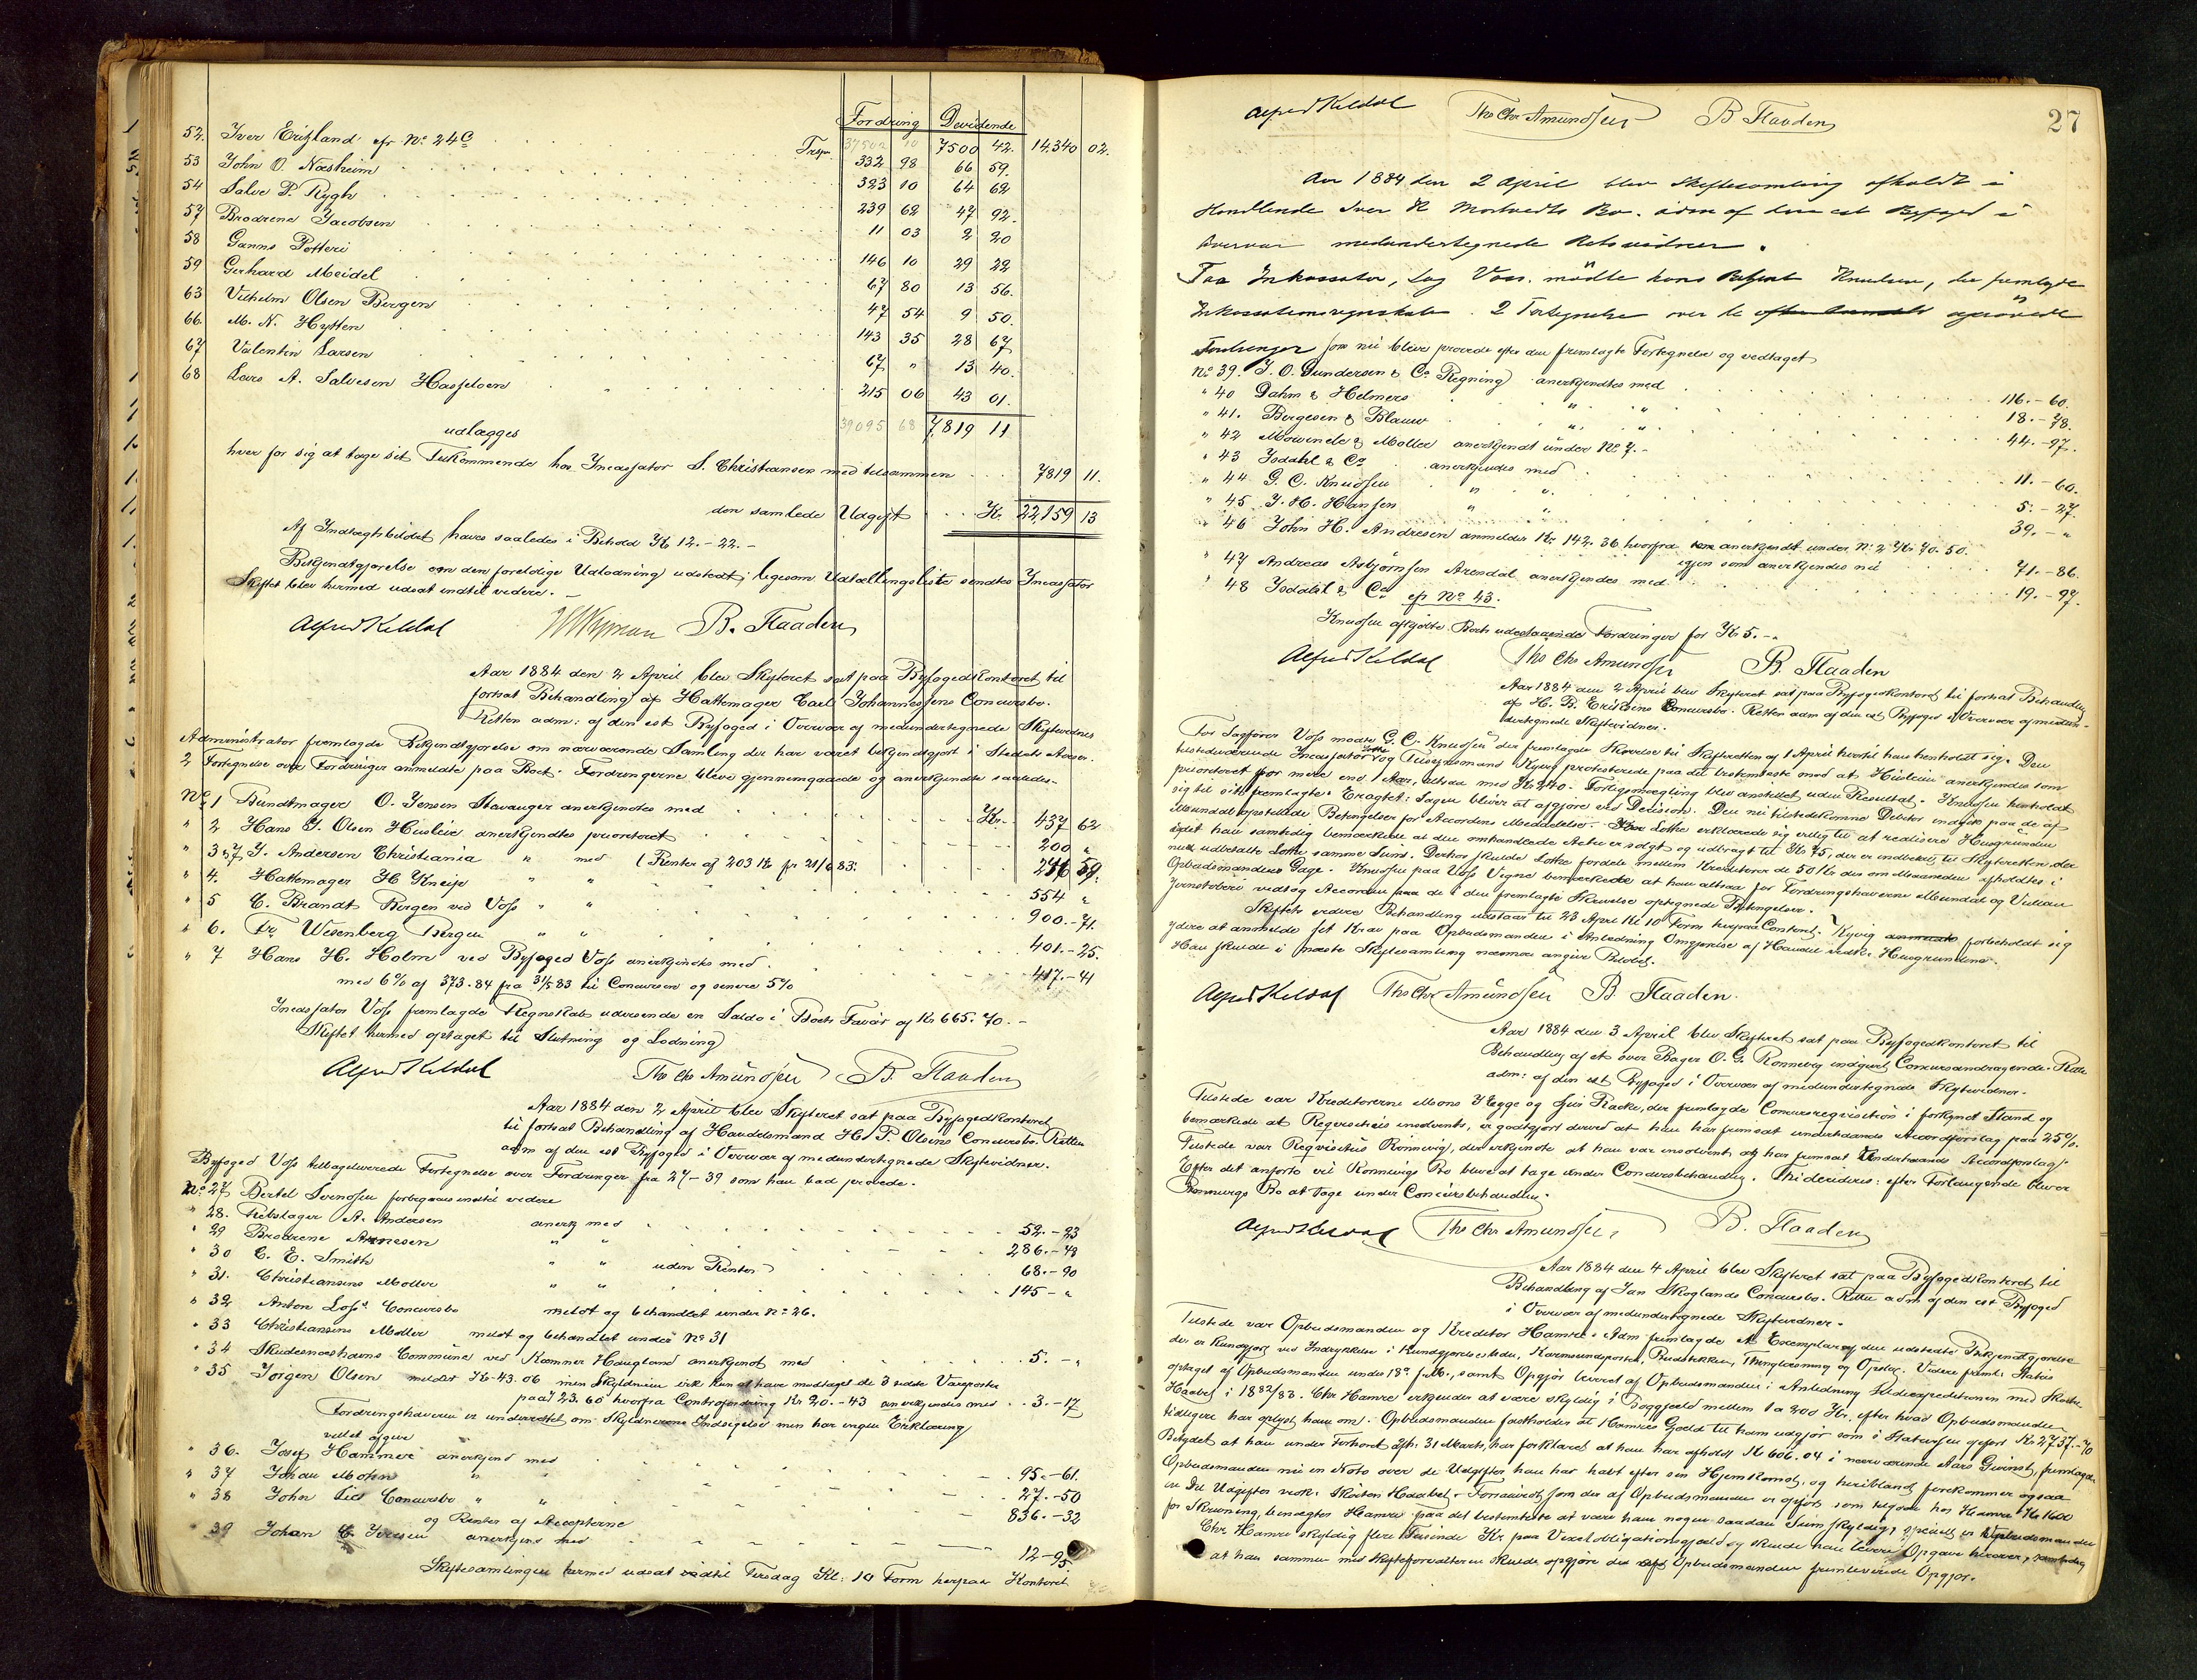 Fordring Devidende
Trspr. 37502 10 7500 42. 14.340 02.
52. Iver Eritzland cfr No: 24c 332 98 66 59.
53 John O. Næsheim 323 10 64 62
54 Salve P. Rygh 239 62 47 92.
57 Brødrene Jacobsen 11 03 2 20
58 Ganns Potteri 146 10 29 22
59 Gerhard Meidel 67 80 13 56.
63 Vilhelm Olsen Bergen 47 54 9 50.
66. M. N. Hytten 143 35 28 67
67 Valentin Larsen 67 " 13 40.
68 Lars A. Salvesen Hasseløen 215 06 43 01.
udlægges 39095 68 7,819 11
hver for sig at tage sit Tilkommende hos Incassator S. Christiansen med tilsammen 7819 11.
den samlede Udgift Kr. 22,159 13
Af Indtægtsbeløbet haves saaledes i Behold Kr 12.-22.-
Bekjendtgjørelse om den foreløbige Udlodning udstedt, ligesom Udtællingsliste sendtes Incassator
Skiftet blev hermed udsat indtil videre.-
Alfred Kildal B. Flaaden
Aar 1884 den 2 April blev Skifteret sat paa Byfogedkontoret til
fortsat Behandling af Hattemager Carl Johannessens Concursbo.
Retten adm: af den cst Byfoged i Overvær af medundertegnede Skiftevidner
Administrator fremlagde Bekjendtgjørelse om nærværende Samling der har været bekjendtgjort i Stedets Aviser.
2 Fortegnelse over Fordringer anmeldte paa Boet. Fordringerne bleve gjennemgaaede og anerkjendte saaledes.
No 1 Bundtmager O. Jensen Stavanger anerkjendtes med Kr. 437 62
" 2 Hans J. Olsen Husleie anerkjendtes prioriteret 200 "
" 3 & 7 J. Andersen Christiania " med (Renter af 203 Kr fr 21/6 83. 216 59.
" 4. Hattemager H Kneip " " 554 "
" 5 C. Brandt Bergen ved Voss " " 900.-71.
" 6. Fr Wesenberg Bergen " " 401.-25.
" 7 Hans H. Holm ved Byfoged Voss anerkjendtes med. 417.-41
med 6% af 373.84 fra 31/5 83 til Concursen og senere 5%
Incassator Voss fremlagde Regnskab udvisende en Saldo i Boets Favør af Kr 665.70.-
Skiftet hermed optaget til Slutning og Lodning
Alfred Kildal Ths Chr Amundsen B. Flaaden
Aar 1884 den 2 April blev Skifteret sat paa Byfogedkontoret
til fortsat Behandling af Handelsmand H. P. Olsens Concursbo. Retten
adm af den cst Byfoged i Overvær af medundertegnede Skiftevidner.
Byfoged Voss tilbageleverede Fortegnelse over Fordringer fra 27-39 som han bad prøvede.
No 27 Bertel Svendsen forbigaaes indtil videre
" 28. Rebslager A. Andersen anerkj med 52.-23
" 29 Brødrene Arnesen " " 286.-48
" 30 C. E. Smith " " uden Renter 68.-90
" 31. Christiansens Møller " " 145-"
" 32 Anton Loss's Concursbo meldt og behandlet under No 26.
" 33 Christiansens Møller meldt og behandlet under No 31
" 34 Skudesneshavns Commune ved Kæmner Haugland anerkjendt med 5.-"
" 35 Jørgen Olsen meldt Kr 43.06 men Skyldneren vil kun have modtaget de 3 sidste Vareposter
paa 23.60 hvorfra Contrafordring Kr 20.-43 anerkjendes med 3.-17
Fordringshaveren er underrettet om Skyldnerens Indsigelse men har ingen Erklæring
villet afgive
" 36. Josef Hammer anerkjend med 95.-61.
" 37 Johan Mohn " " 27.-50
" 38 John Lies Concursbo " " 836.-32
og Renter af Accepterne
" 39 Johan C. Iversen anerkjend med 12-95
Skiftesamlingen hermed udsat indtil Tirsdag Kl: 10 Form herpaa Kontoret
27
Alfred Kildal Ths Chr Amundsen B Flaaden
Aar 1884 den 2 April blev Skiftesamling afholdt i
Handlende Iver K Mortvedts Bo. adm af den cst Byfoged i
Overvær medundertegnede Retsvidner.
For Inkassator, Sag Voss. mødte hans Knudsen, der fremlagde
Inkassationsregnskab. 2 Fortegnelse over de uprøvede
Fordringer som nu bleve prøvede efter den fremlagte Fortegnelse og vedtaget
No 39. J. O. Gundersen & Co Regning anerkjendtes med 116.-60.
" 40 Dahm & Helmers " " 18.-78.
" 41. Bergesen & Blauw " " 44.-97.
" 42 Mowinckel & Møller anerkjendt under No 7.-
" 43 Isdahl & Co anerkjendes med 11.-60.
" 44 G. C. Knudsen " " 5.-27.
" 45 J. H. Hansen " " 39.-"
" 46 John H. Andresen anmelder Kr 142.36 hvorfra anerkjendt under No 2 Kr 70.50. igjen som anerkjendes nu 71.-86.
" 47 Andreas Asbjørnsen Arendal anerkjendes med 19.-97.
" 48 Isdahl & Co cfr No 43.
Knudsen afkjøbte Boets udestaaende Fordringer for Kr 5.-"
Alfred Kildal Ths Chr Amundsen B. Flaaden
Aar 1884 den 2 April blev Skifteret sat paa Byfogedkontoret til fortsat Behandling
af H. B. Eriksens Concursbo. Retten adm af den cst Byfoged i Overvær af medun-
dertegnede Skiftevidner.
For Sagfører Voss mødte G. C. Knudsen der fremlagde Skrivelse til Skifteretten af 1 April hvortil han henholdt sig. Den
tilstedeværende Incassator Lothe og Tillidsmand Kyvig protesterede paa det bestemteste mod at Husleien anerkjendes som
prioriteret for mere end 1 Aar, altsaa med Kr 240. Forligsmægling blev anstillet uden Resultat. Knudsen henholdt
sig til sit fremlagte. Eragtet: Sagen bliver at afgjøre ved Decision. Den nu tilstedekomne Debitor indgik paa de af
Mundal opstillede Betingelser for Accordens Meddelelse. Lothe erklærede sig villig til at realisere Husgrunden
idet han samtidig bemærkede at den omhandlede Actie er solgt og udbragt til Kr 75, der er indbetalt til Skifteretten der
nu udbetalte Lothe samme Sum. Derhos skulde Lothe fordele mellem Kreditorer de 50 Kr der om Maaneden afholdtes i
Opbudsmandens Gage. Knudsen paa Voss Vegne bemærkede at han altsaa for Fordringshaverne Mundal og Vulcan
Jernstøberi vedtog Accorden paa de i den fremlagte Skrivelse optegnede Betingelser.
Skiftets videre Behandling udstaar til 23 April Kl 10 Form herpaa Contoret. Kyvig forbeholdt sig
ydere at anmelde sit Krav paa Opbudsmanden i Anledning Omgjørelse af Handel vedk. Husgrunden.
Han skulde i næste Skiftesamling nærmere angive Beløbet.
Alfred Kildal Ths Chr Amundsen B. Flaaden.
Aar 1884 den 3 April blev Skifteret sat paa Byfogedkontoret til
Behandling af et over Bager O. G. Rønnevig indgivet Concursandragende. Retten
adm: af den cst Byfoged i Overvær af medundertegnede Skiftevidner.
Tilstede var Kreditorerne Mons Hegge og Racke, der fremlagde Concursreqvisition i forkyndt Stand og
bemærkede at Reqvisiti insolvents, er godtgjort derved at han har fremsat underhaands Accordforslag paa 25%.
Tilstede var Reqvisitus Rønnevig, der erkjendte at han var insolvent og har fremsat Underhaands Accordforslag.
Efter det anførte vil Rønnevigs Bo blive at tage under Concursbehandling. Thi decideres: efter Forlangende bliver
Rønnevigs Bo at tage under Concursbehandling.
Alfred Kildal Ths Chr Amundsen B. Flaaden
Aar 1884 den 4 April blev Skifteret sat paa Byfogedkontoret til
Behandling af Jan Skoglands Concursbo. Retten adm. af den cst Byfoged
i Overvær af medundertegnede Skiftevidner.
Tilstede var Opbudsmanden og Kreditor Hamre. Adm fremlagde et Exemplar af den udstedte Bekjendtgjørelse
der er kundgjort ved Indrykkelse i Kundgjørelsestid., Karmsundsposten, Budstikken, Thinglæsning og Opslag. Videre freml: Status
optaget af Opbudsmanden under 18de f. M., samt Opgjør leveret af Opbudsmanden i Anledning Sildexpeditionen med Skøiten
Haabet i 1882/83. Chr Hamre erkjender at være skyldig i Boggjæld mellem 1 a 200 Kr, efter hvad Opbudsmanden
tidligere har oplyst ham om. Opbudsmanden fastholder at Hamres Gjæld til ham udgjør som i Statussen opført Kr 2737.-70
Betydet at han under Forhøret afh: 31 Marts, har forklaret at han har afholdt Kr 606.04 i nærværende Aars Givinst, fremlagde
Opbudsmanden nu en Nota over de Udgifter han har havt efter sin Hjemkomst, og heriblandt forekommer ogsaa
en Del Udgifter vedk: Skøiten Haabet. Forsaavidt som der af Opbudsmanden er opført som tilgode hos Hamre Kr 1600
for Skruning, benægter Hamre paa det bestemteste at være ham nogen saadan Sum skyldig, Opbudsmanden
Chr Hamre skyldig flere Tusinde Kr paa Vexelobligationsgjæld og skulde han levere Opgave herover, samtidig
at han sammen med Skifteforvalteren skulde opgjøre det af Opbudsmanden fremleverede Opgjør.